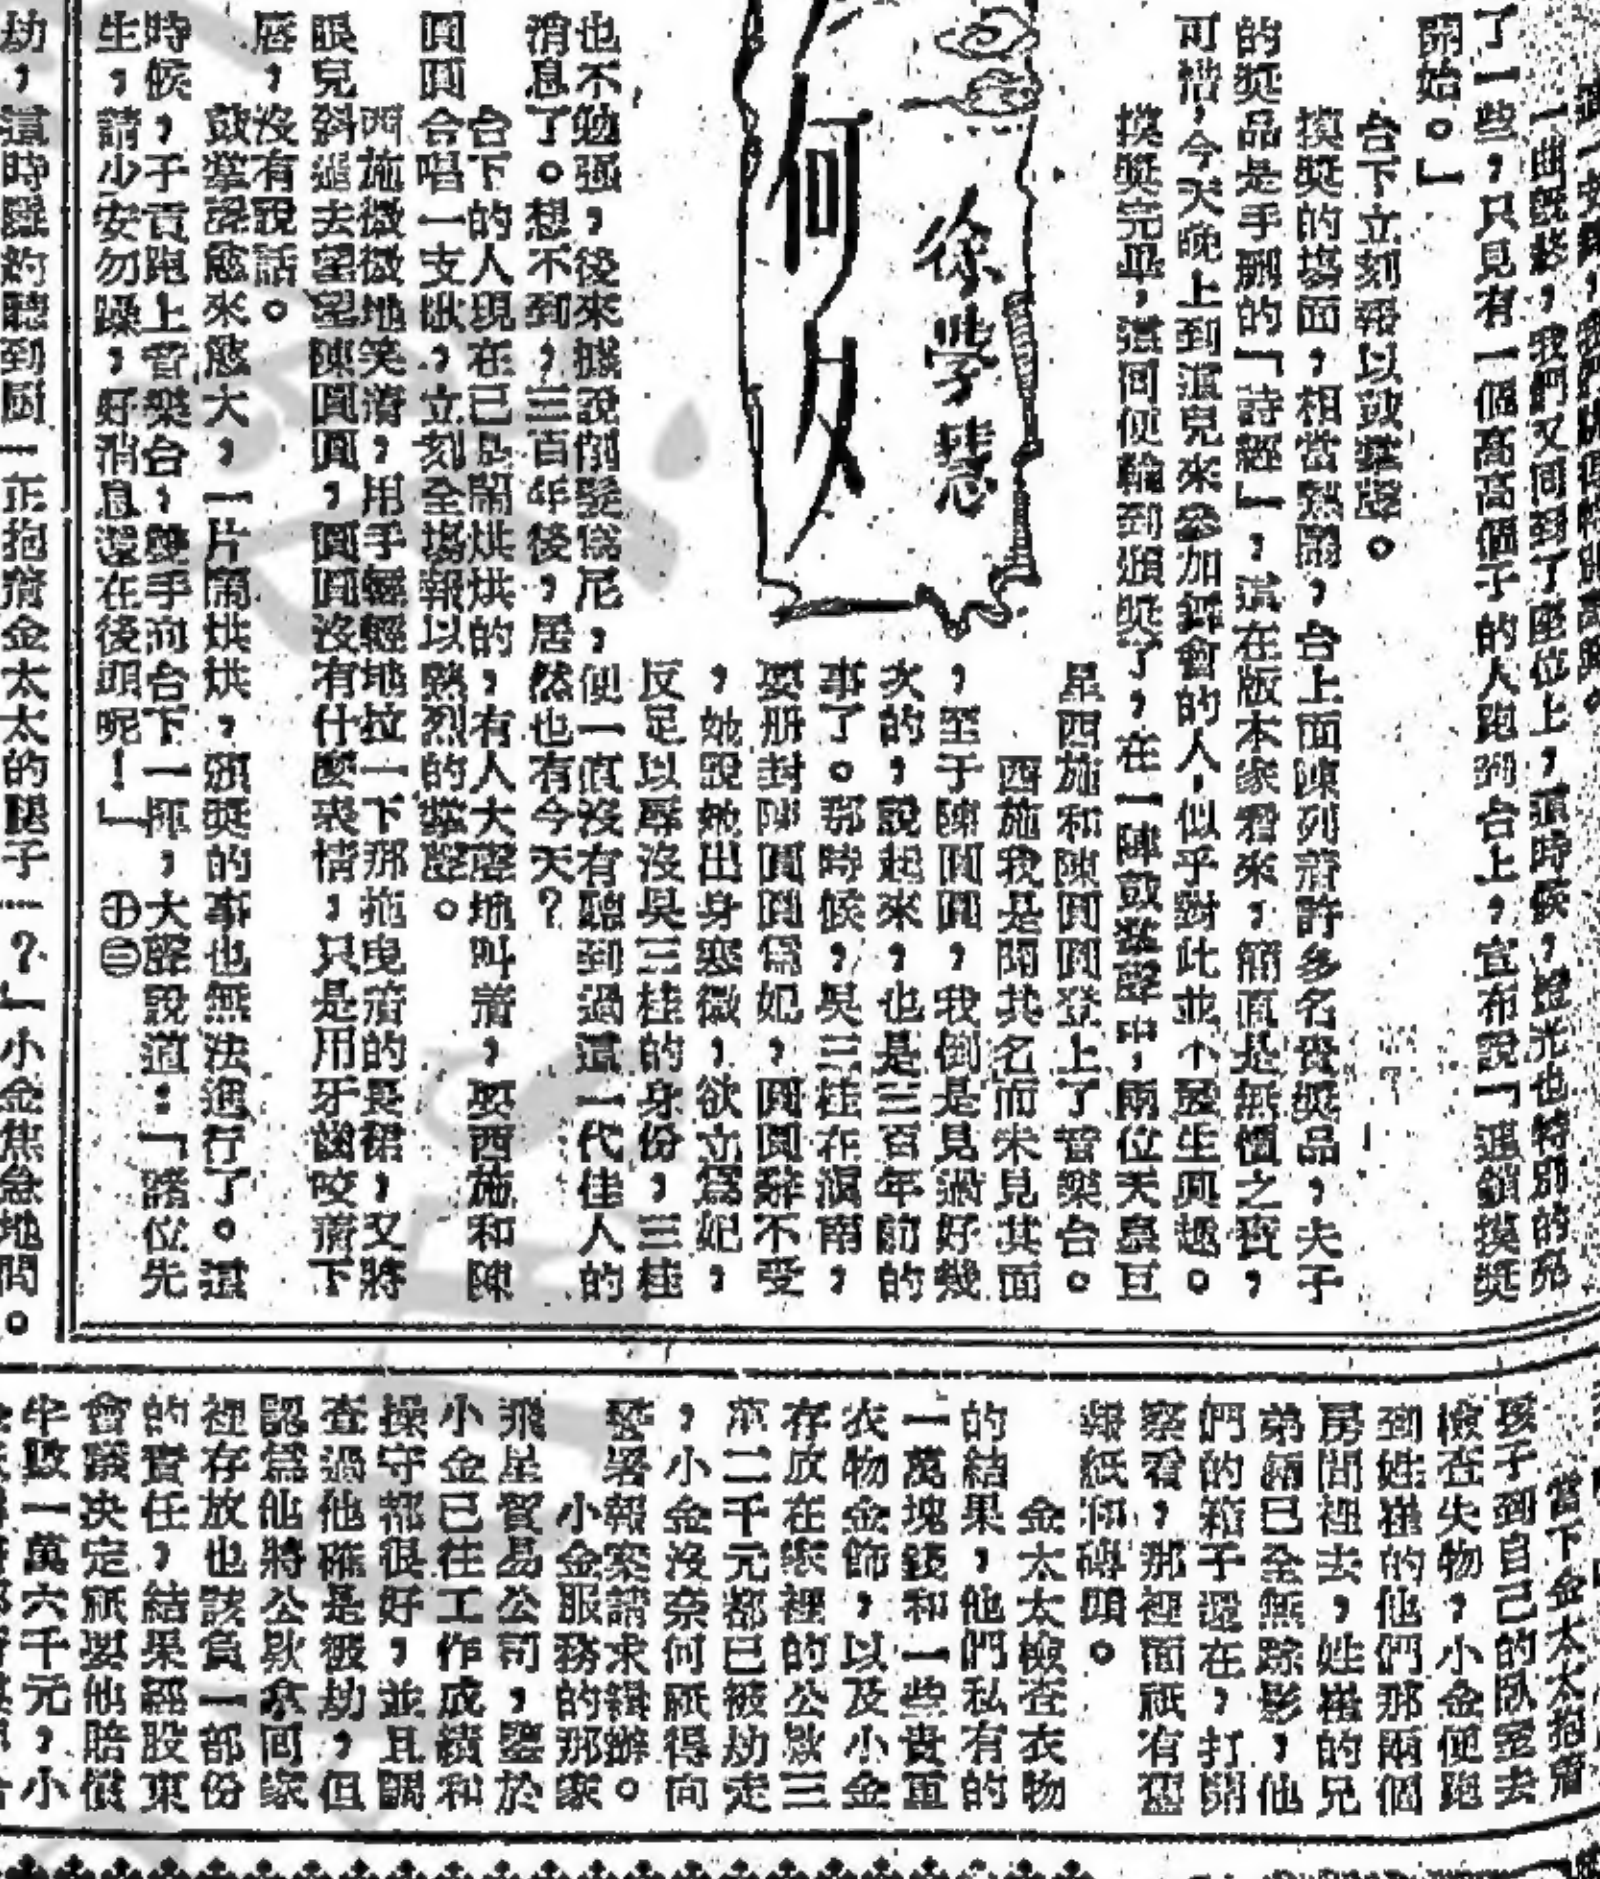 一曲既終，我們又回到了座位上，這時候，燈光也特別的亮
了一些，只見有一個高高個子的人跑到台上，宣布說「遊鎖摸獎
開始。」
台下立刻報以鼓掌聲。
摸獎的場面，相當熱鬧，台上面陳列着許多名貴獎品，夫子
的獎品是手刪的「詩經」，這在版本家看來，簡直是無價之寶，
可惜，今天晚上到這兒來參加舞會的人，似乎對此並不發生興趣。
摸獎完畢，這回便輪到頒獎了，在一陣鼓掌聲中，兩位天皇巨
星西施和陳圓圓登上了音樂台。
西施我是聞其名而未見其面
，至于陳圓圓，我倒是見過好幾
次的，說起來，也是三百年前的
事了。那時候，吳三桂在滇南，
要册封陳圓圓爲妃，圓圓辭不受
，她說她出身寒微，欲立爲妃，
反足以辱沒吳三桂的身份，三桂
也不勉强，後來據說削髮爲尼，便一直沒有聽到過這一代佳人的
消息了。想不到，三百年後，居然也有今天？
台下的人現在已是鬧烘烘的，有人大聲地叫着，要西施和陳
圓圓合唱一支歌，立刻全場報以熱烈的掌聲。
西施微微地笑着，用手輕輕地拉一下那拖曳着的長裙，又將
眼兒斜過去望望陳圓圓，圓圓沒有什麽表情，只是用牙齒咬着下
唇，沒有說話。
鼓掌聲愈來愈大，一片鬧烘烘，頒獎的事也無法進行了。這
時候，子貢跑上音樂台，雙手向台下一揮，大聲說道：「諸位先
生，請少安勿躁，好消息還在後頭呢！」　㊉㊂
徐學慧
何
劫，這時隱約聽到囡囡正抱着金太太的腿子……？」小金焦急地問。
當下金太太抱着
孩子到自己的臥室去
檢查失物，小金便跑
到姓崔的他們那兩個
房間裡去，姓崔的兄
弟倆已全無踪影，他
們的箱子還在，打開
察看，那裡面祇有舊
報紙和磚頭。
金太太檢查衣物
的結果，他們私有的
一萬塊錢和一些貴重
衣物金飾，以及小金
存放在家裡的公欵三
萬二千元都已被劫走
，小金沒奈何祇得向
警署報案請求緝辦。
小金服務的那家
飛星貿易公司，鑒於
小金已往工作成績和
操守都很好，並且調
查過他確是被劫，但
認爲他將公欵拿回家
裡存放也該負一部份
的責任，結果經股東
會議决定祇要他賠償
半數一萬六千元，小